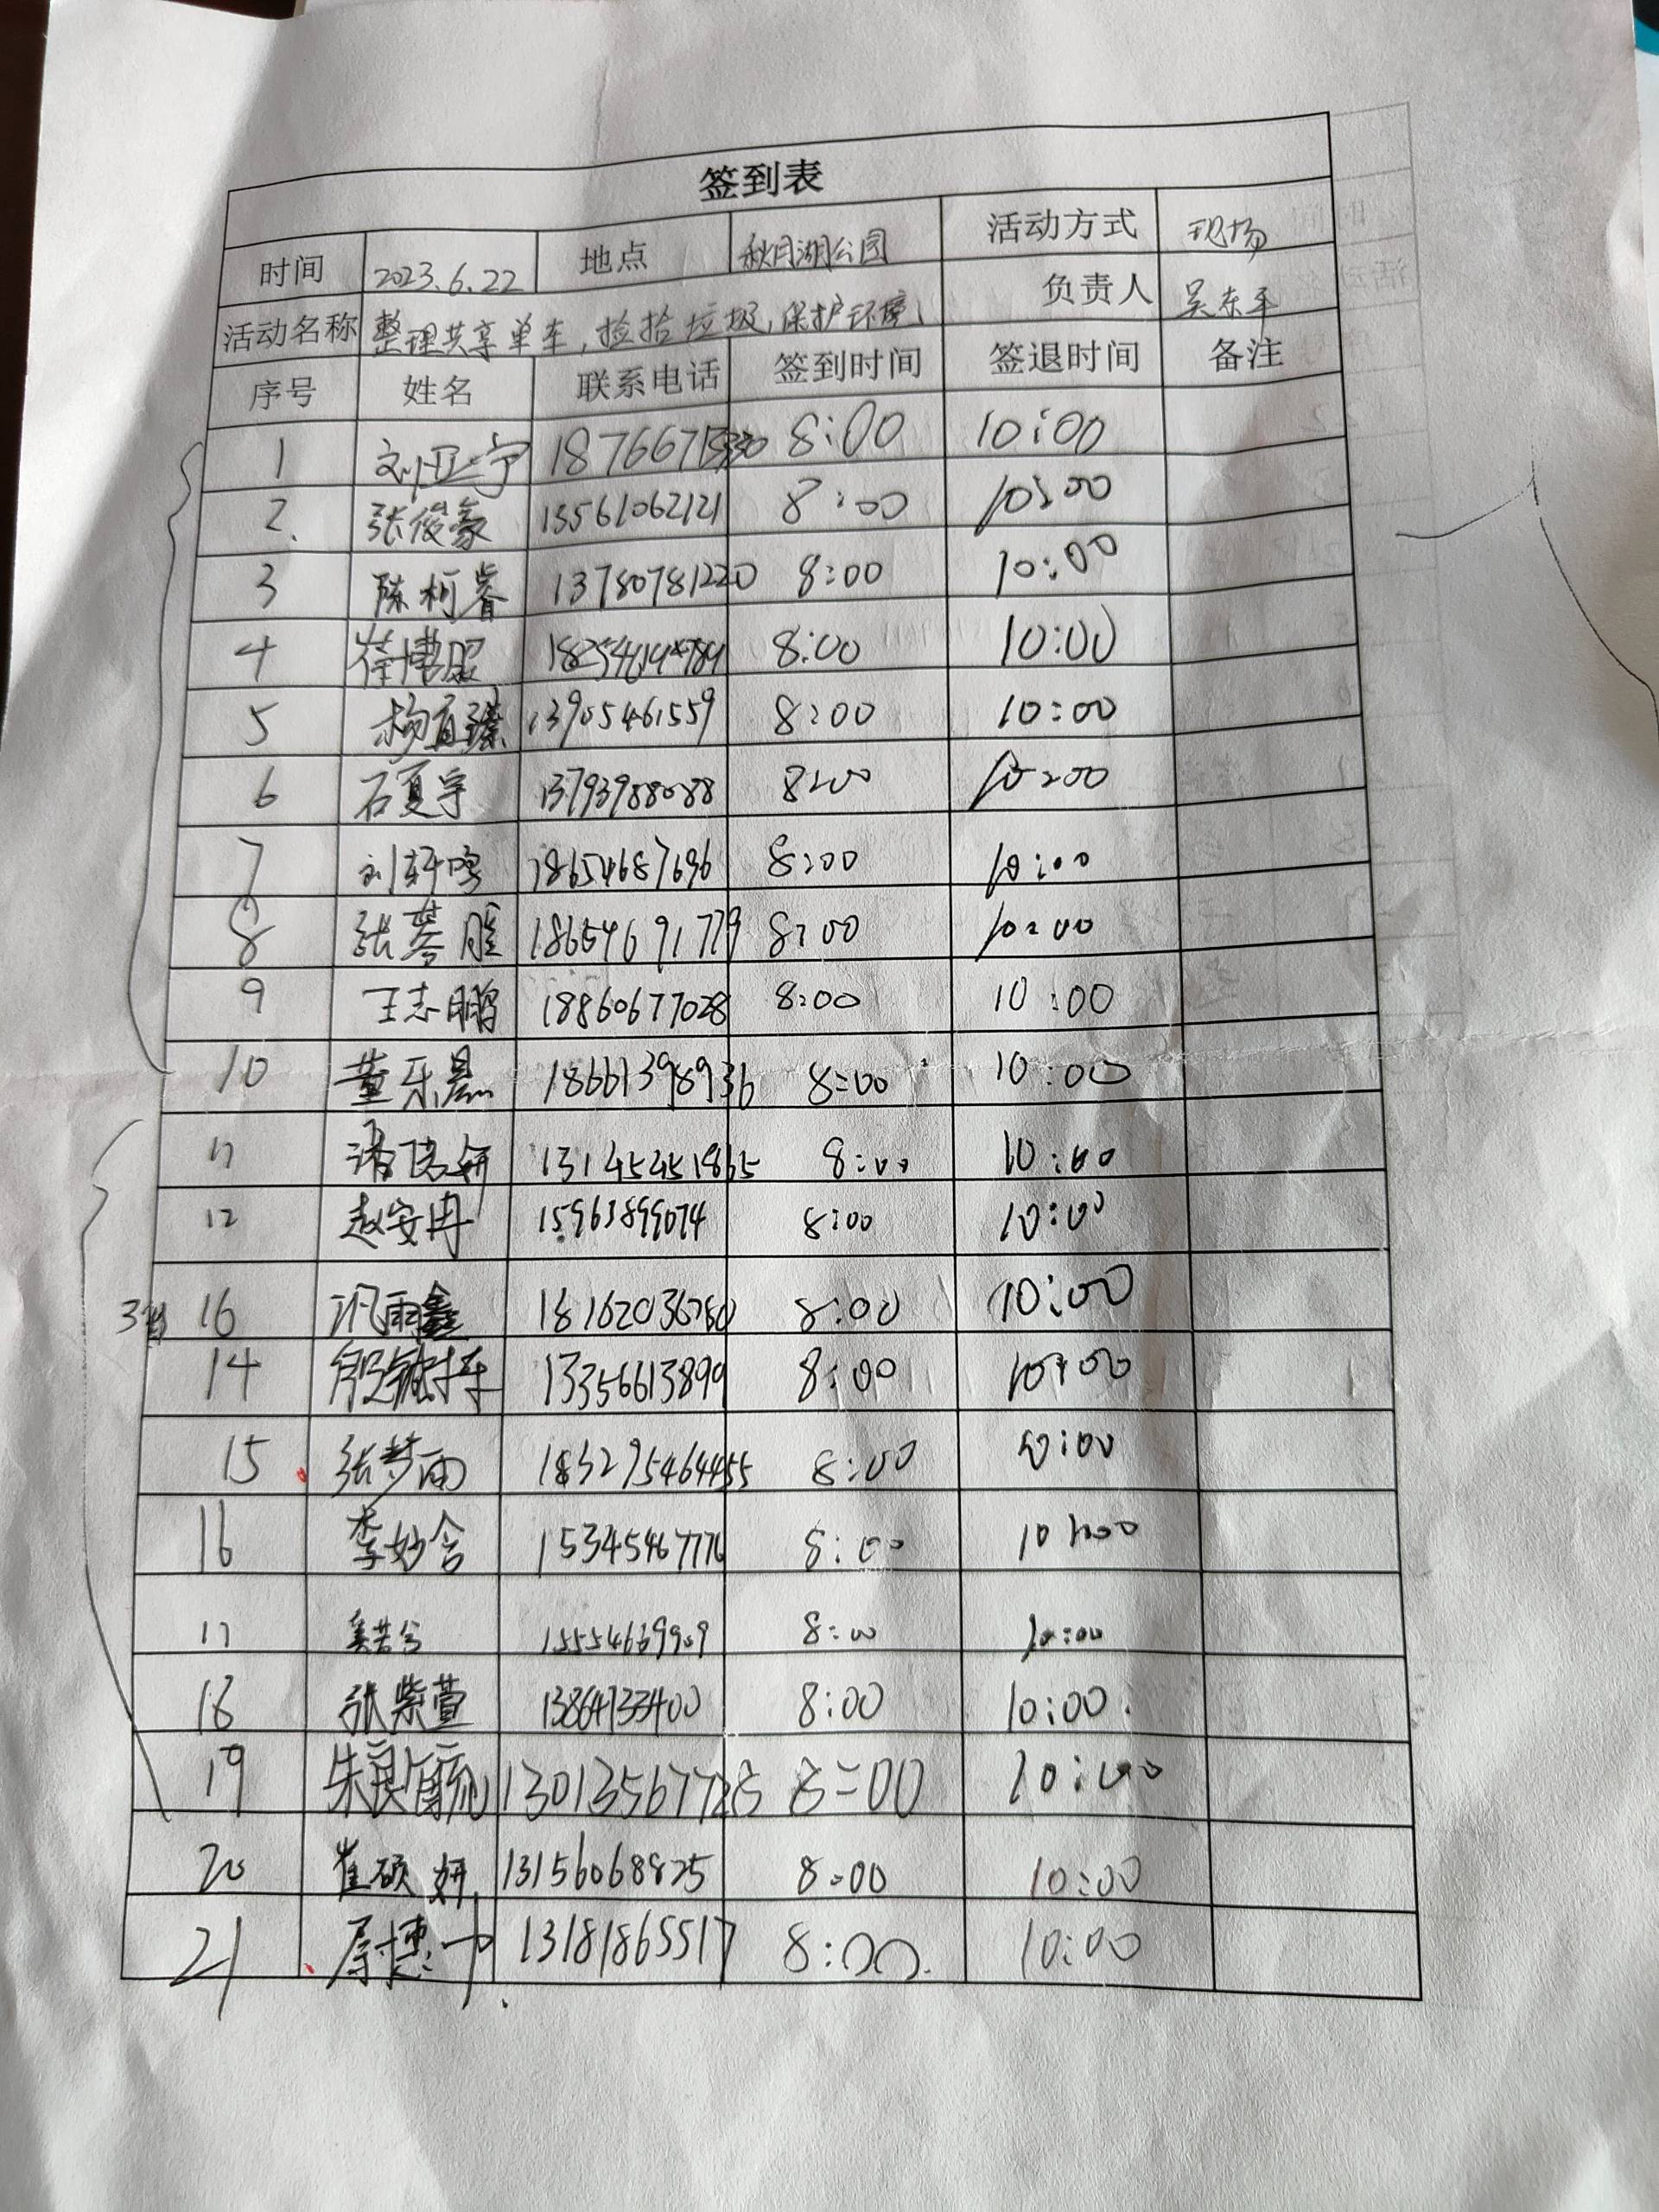 签到表
时间 2023.6.22 地点 秋月湖公园 活动方式 现场
活动名称 整理共享单车,捡拾垃圾,保护环境 负责人 吴东平
序号 姓名 联系电话 签到时间 签退时间 备注
1 刘亚宁 8:00 10:00
2 张俊豪 15561062121 8:00 10:00
3 陈柯睿 13780781220 8:00 10:00
4 8:00 10:00
5 13905461559 8:00 10:00
6 石夏宇 13793988088 8:00 10:00
7 刘轩鸣 18654687696 8:00 10:00
8 18654691779 8:00 10:00
9 王志鹏 18860677028 8:00 10:00
10 董乐晨 18661398936 8:00 10:00
11 8:00 10:00
12 赵安冉 15963899074 8:00 10:00
16 18162036780 8:00 10:00
14 13356613899 8:00 10:00
15 张梦雨 8:00 10:00
16 李妙含 15345467776 8:00 10:00
17 15554669909 8:00 10:00
18 张紫萱 13864733400 8:00 10:00
19 13013567728 8:00 10:00
20 崔硕妍 13156068825 8:00 10:00
21 13181865517 8:00 10:00